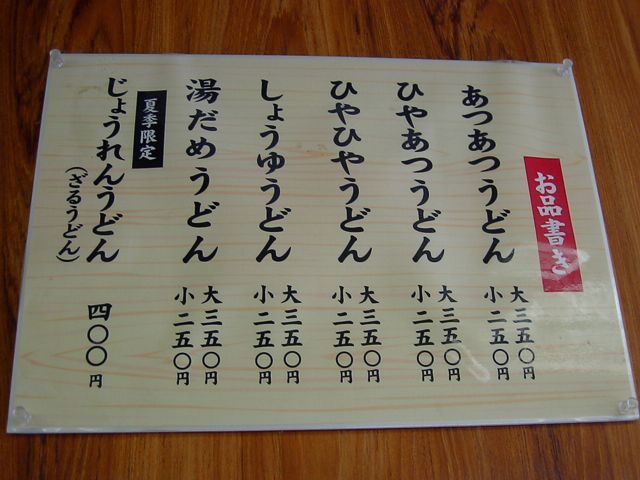 お品書き
あつあつうどん
大三五〇円
小二五〇円
ひやあつうどん
大三五〇円
小二五〇円
ひやひやうどん
大三五〇円
小二五〇円
しょうゆうどん
大三五〇円
小二五〇円
湯だめうどん
大三五〇円
小二五〇円
夏季限定
じょうれんうどん
（ざるうどん）
四〇〇円